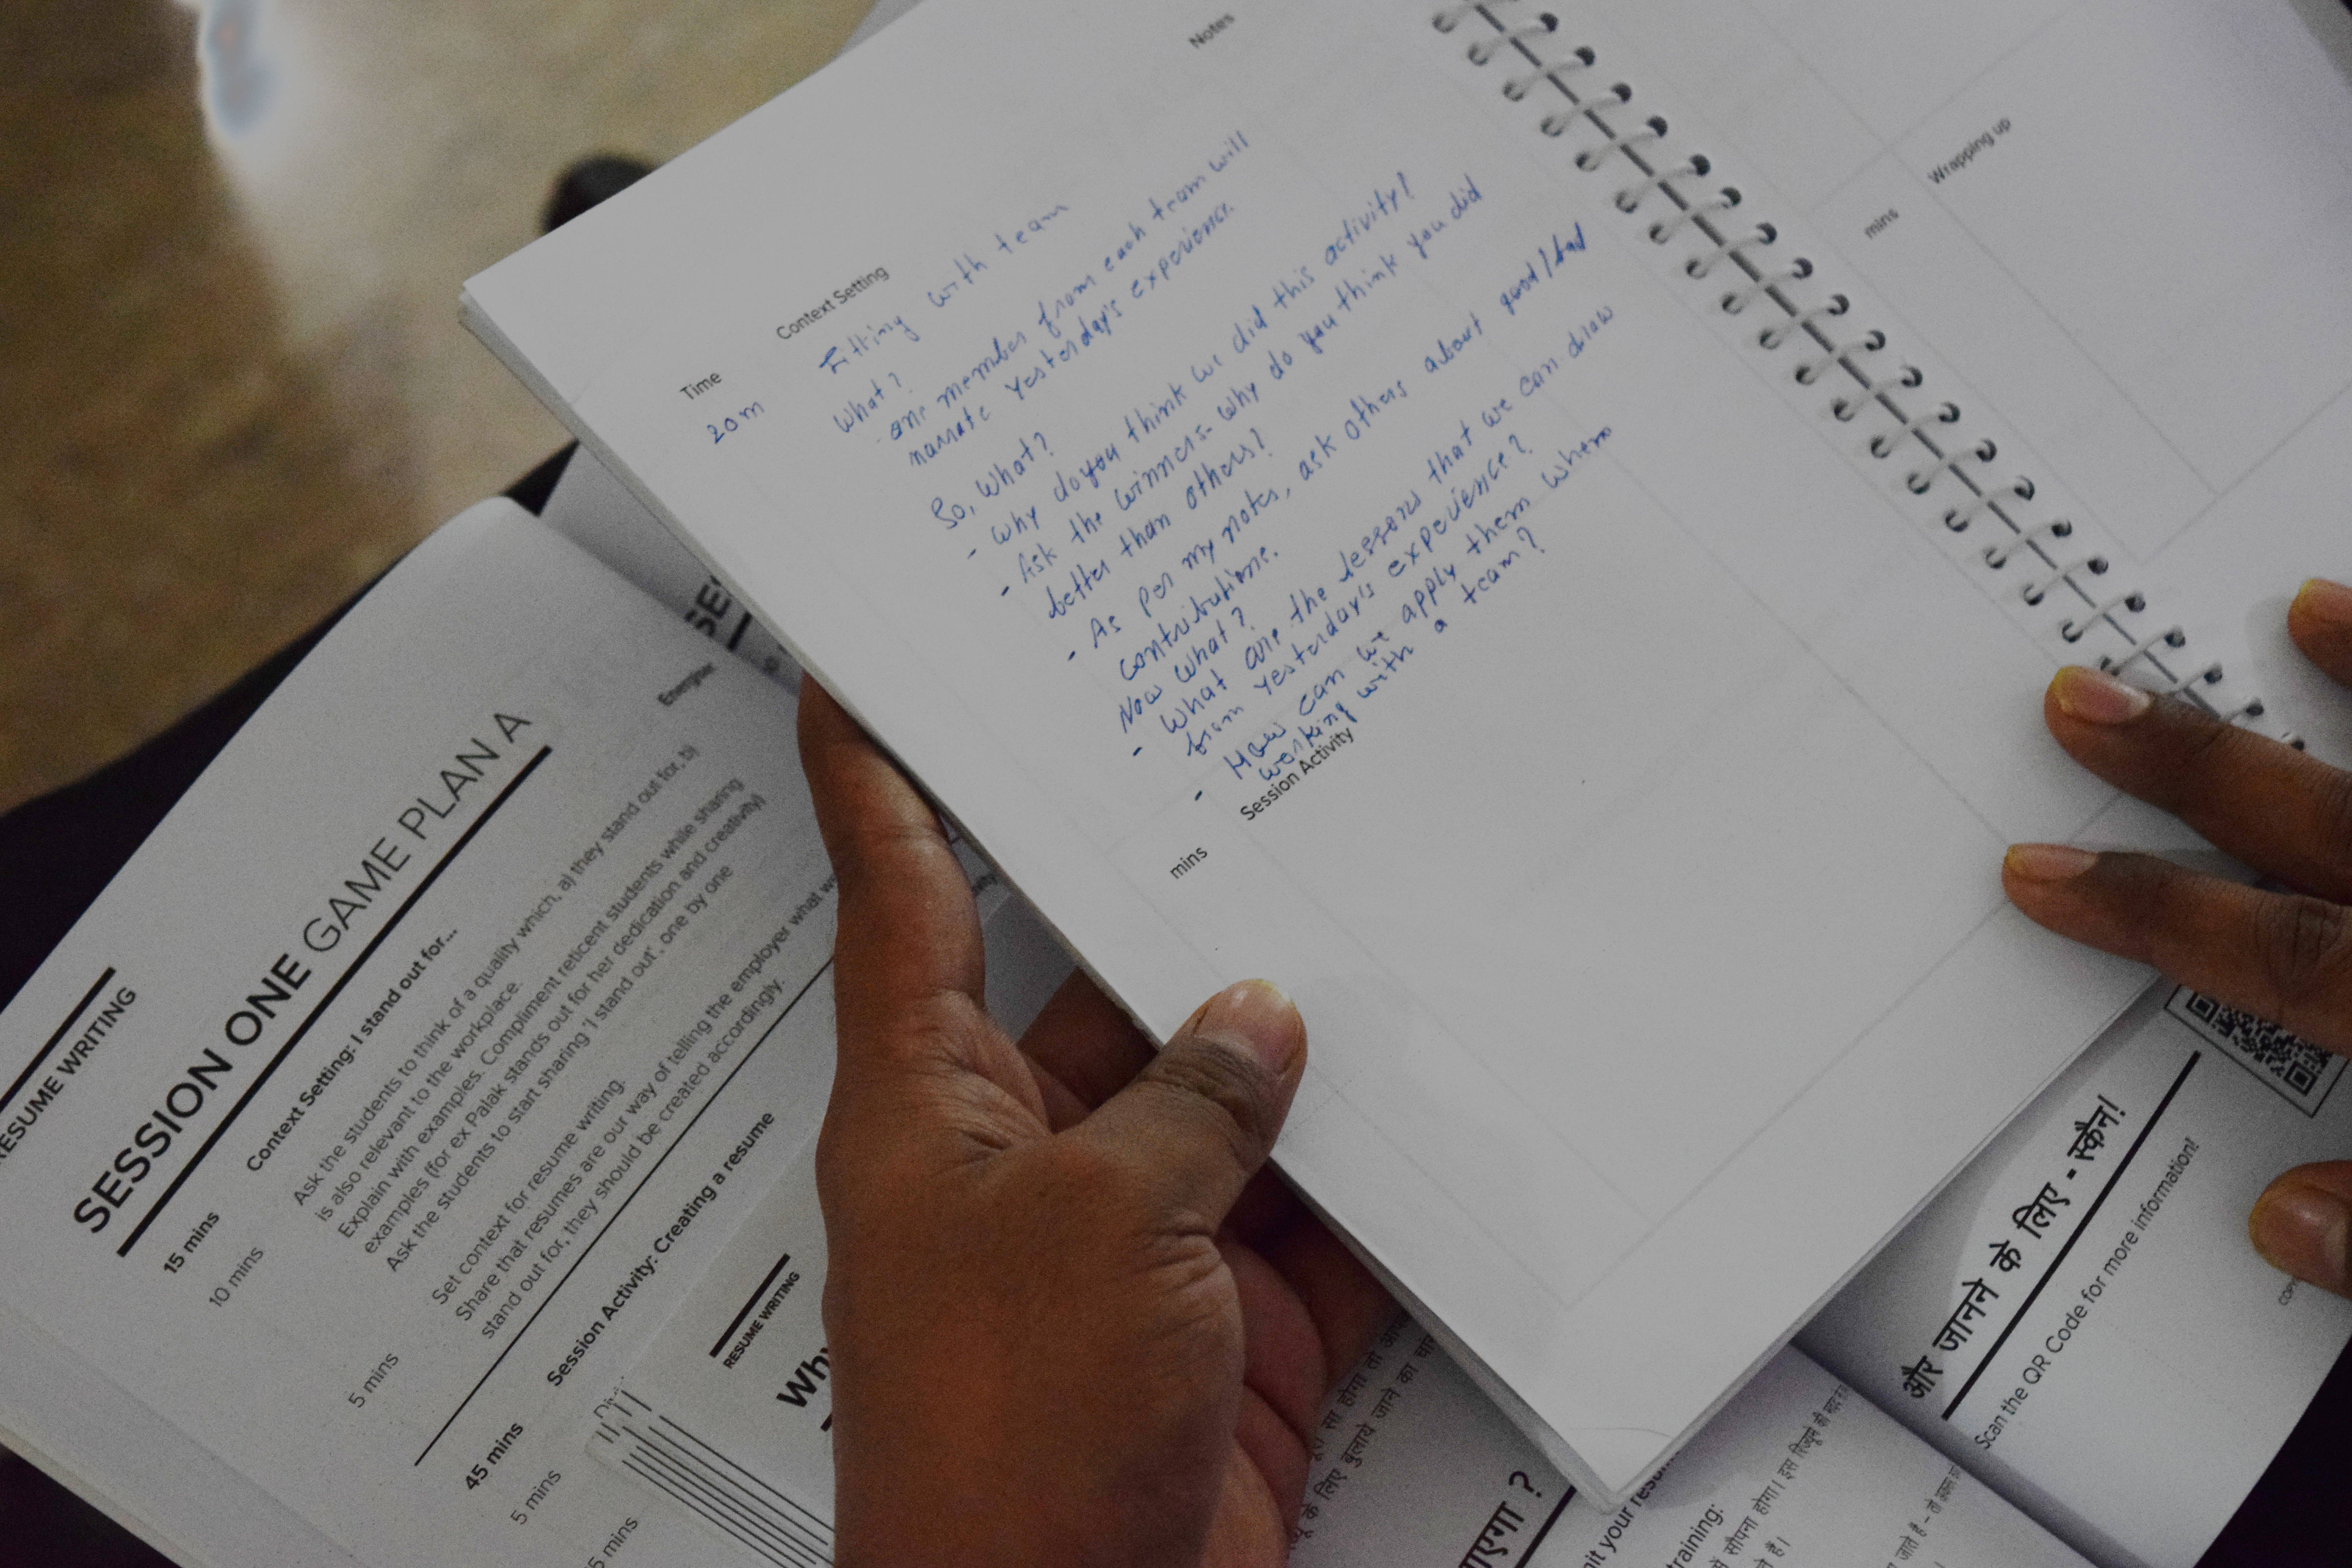 Notes
Time
Context Setting
20 m
Fitting with team
What?
- one member from each team will
narrate Yesterday's experience.
So, What?
- Why do you think we did this activity?
- Ask the winners - why do you think you did
better than others?
- As per my notes, ask others about good/bad
contributions.
Now what?
- What are the lessons that we can draw
from Yesterday's experience?
- How can we apply them when
working with a team?
mins
Session Activity
mins
Wrapping up
RESUME WRITING
SESSION ONE GAME PLAN A
Energiser
15 mins
Context Setting: I stand out for...
10 mins
Ask the students to think of a quality which, a) they stand out for, b)
is also relevant to the workplace.
Explain with examples. Compliment reticent students while sharing
examples (for ex Palak stands out for her dedication and creativity)
Ask the students to start sharing 'I stand out', one by one
5 mins
Set context for resume writing.
Share that resumes are our way of telling the employer what
stand out for, they should be created accordingly.
45 mins
Session Activity: Creating a resume
5 mins
5 mins
RESUME WRITING
Why
SE
और जानने के लिए - स्कैन!
Scan the QR Code for more information!
के लिए बुलाये जाने का
?
training: